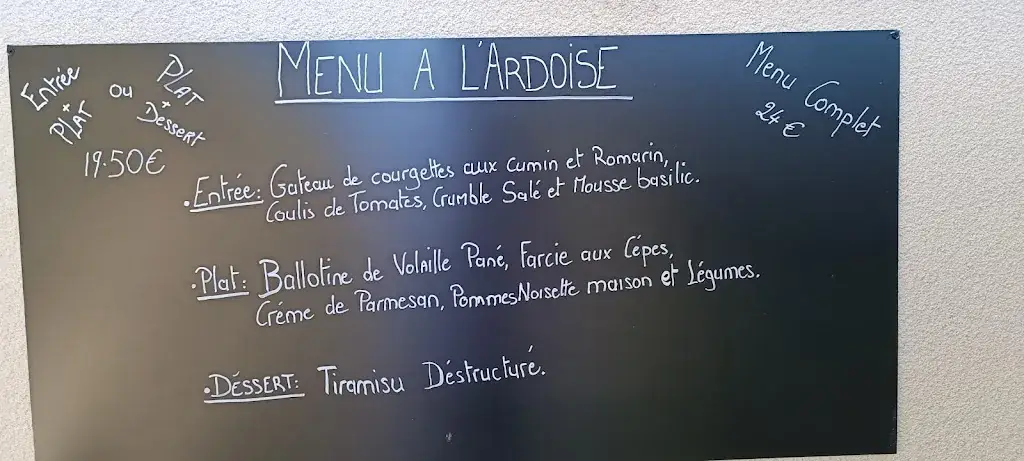 MENU A L'ARDOISE
Entrée
+
PLAT
ou
PLAT
+
Dessert
19.50€
Menu Complet
24€
.Entrée: Gateau de courgettes aux cumin et Romarin,
Coulis de Tomates, Crumble Salé et Mousse basilic.
.Plat: Ballotine de Volaille Pané, Farcie aux Cépes,
Créme de Parmesan, Pommes Noisette maison et Légumes.
.DÉSSERT: Tiramisu Déstructuré.